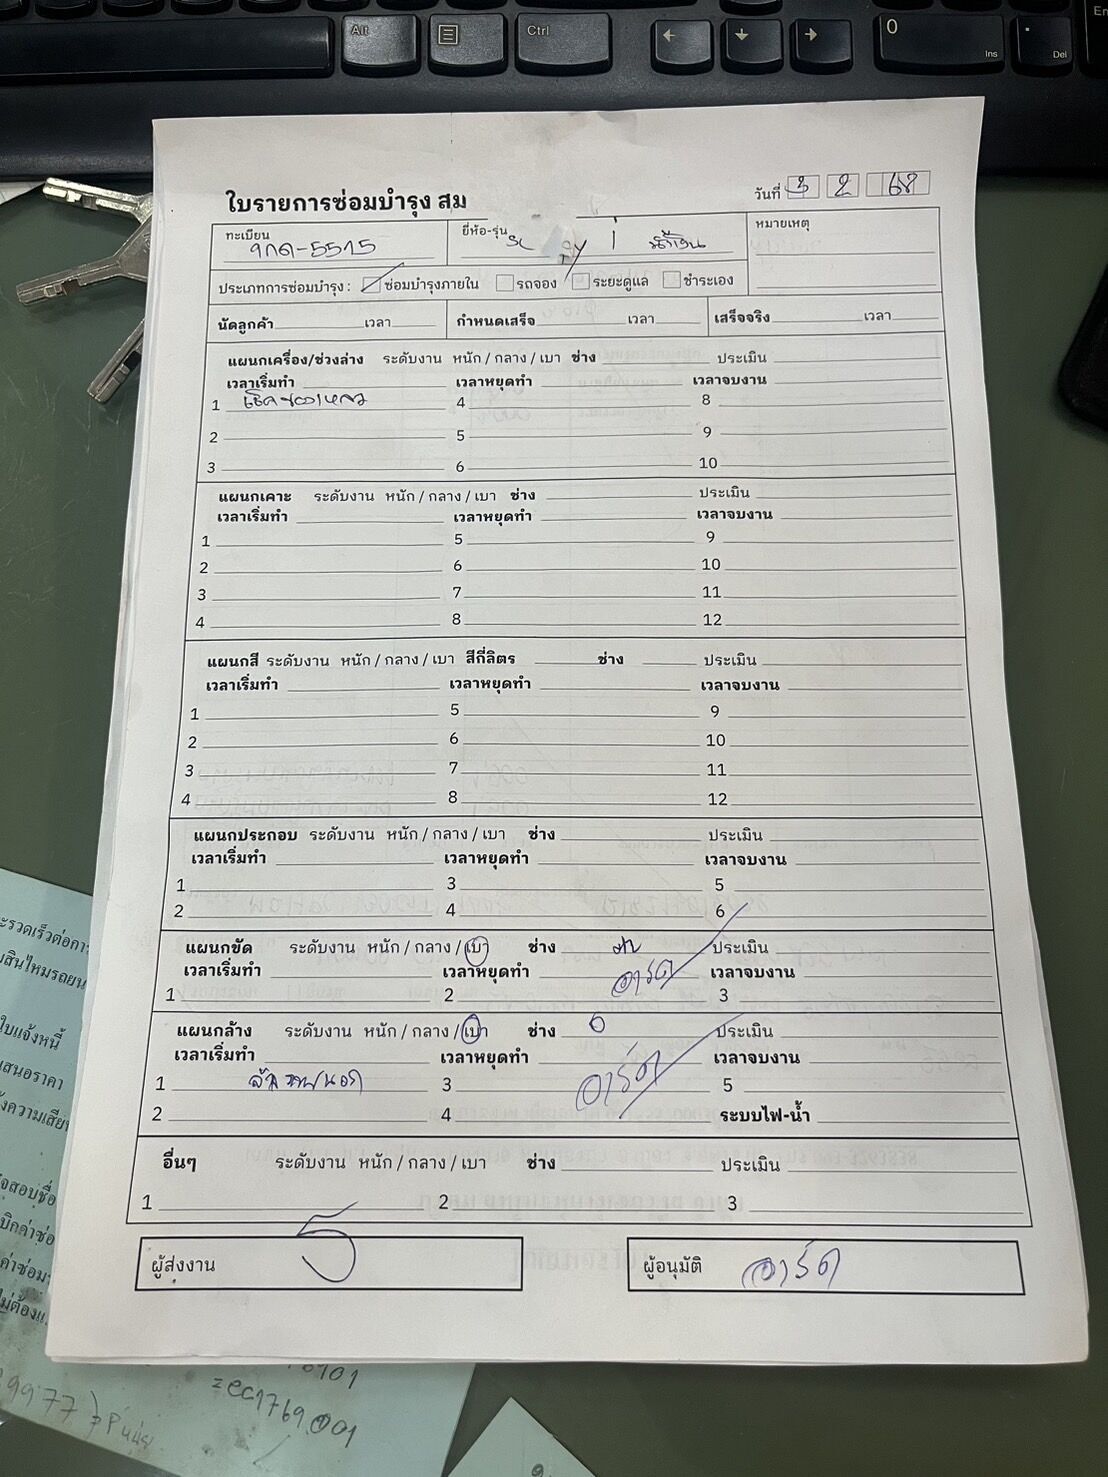 Alt
Ctrl
0
Ins
.
Del
ใบรายการซ่อมบำรุง สม
วันที่ 3 2 68
ทะเบียน
1กด-5515
ยี่ห้อ-รุ่น
หมายเหตุ
ประเภทการซ่อมบำรุง : ซ่อมบำรุงภายใน รถจอง ระยะดูแล ชำระเอง
นัดลูกค้า เวลา กำหนดเสร็จ เวลา เสร็จจริง เวลา
แผนกเครื่อง/ช่วงล่าง ระดับงาน หนัก / กลาง / เบา ช่าง ประเมิน
เวลาเริ่มทำ เวลาหยุดทำ เวลาจบงาน
1 เช็คของเหลว 4 8
2 5 9
3 6 10
แผนกเคาะ ระดับงาน หนัก / กลาง / เบา ช่าง ประเมิน
เวลาเริ่มทำ เวลาหยุดทำ เวลาจบงาน
1 5 9
2 6 10
3 7 11
4 8 12
แผนกสี ระดับงาน หนัก / กลาง / เบา สีกี่ลิตร ช่าง ประเมิน
เวลาเริ่มทำ เวลาหยุดทำ เวลาจบงาน
1 5 9
2 6 10
3 7 11
4 8 12
แผนกประกอบ ระดับงาน หนัก / กลาง / เบา ช่าง ประเมิน
เวลาเริ่มทำ เวลาหยุดทำ เวลาจบงาน
1 3 5
2 4 6
แผนกขัด ระดับงาน หนัก / กลาง / เบา ช่าง ประเมิน
เวลาเริ่มทำ เวลาหยุดทำ อาร์ต เวลาจบงาน
1 2 3
แผนกล้าง ระดับงาน หนัก / กลาง / เบา ช่าง ประเมิน
เวลาเริ่มทำ เวลาหยุดทำ อาร์ต เวลาจบงาน
1 ล้างภายนอก 3 5
2 4 ระบบไฟ-น้ำ
อื่นๆ ระดับงาน หนัก / กลาง / เบา ช่าง ประเมิน
1 2 3
ผู้ส่งงาน
ผู้อนุมัติ อาร์ต
ใบแจ้งหนี้
=ec1769001
9977